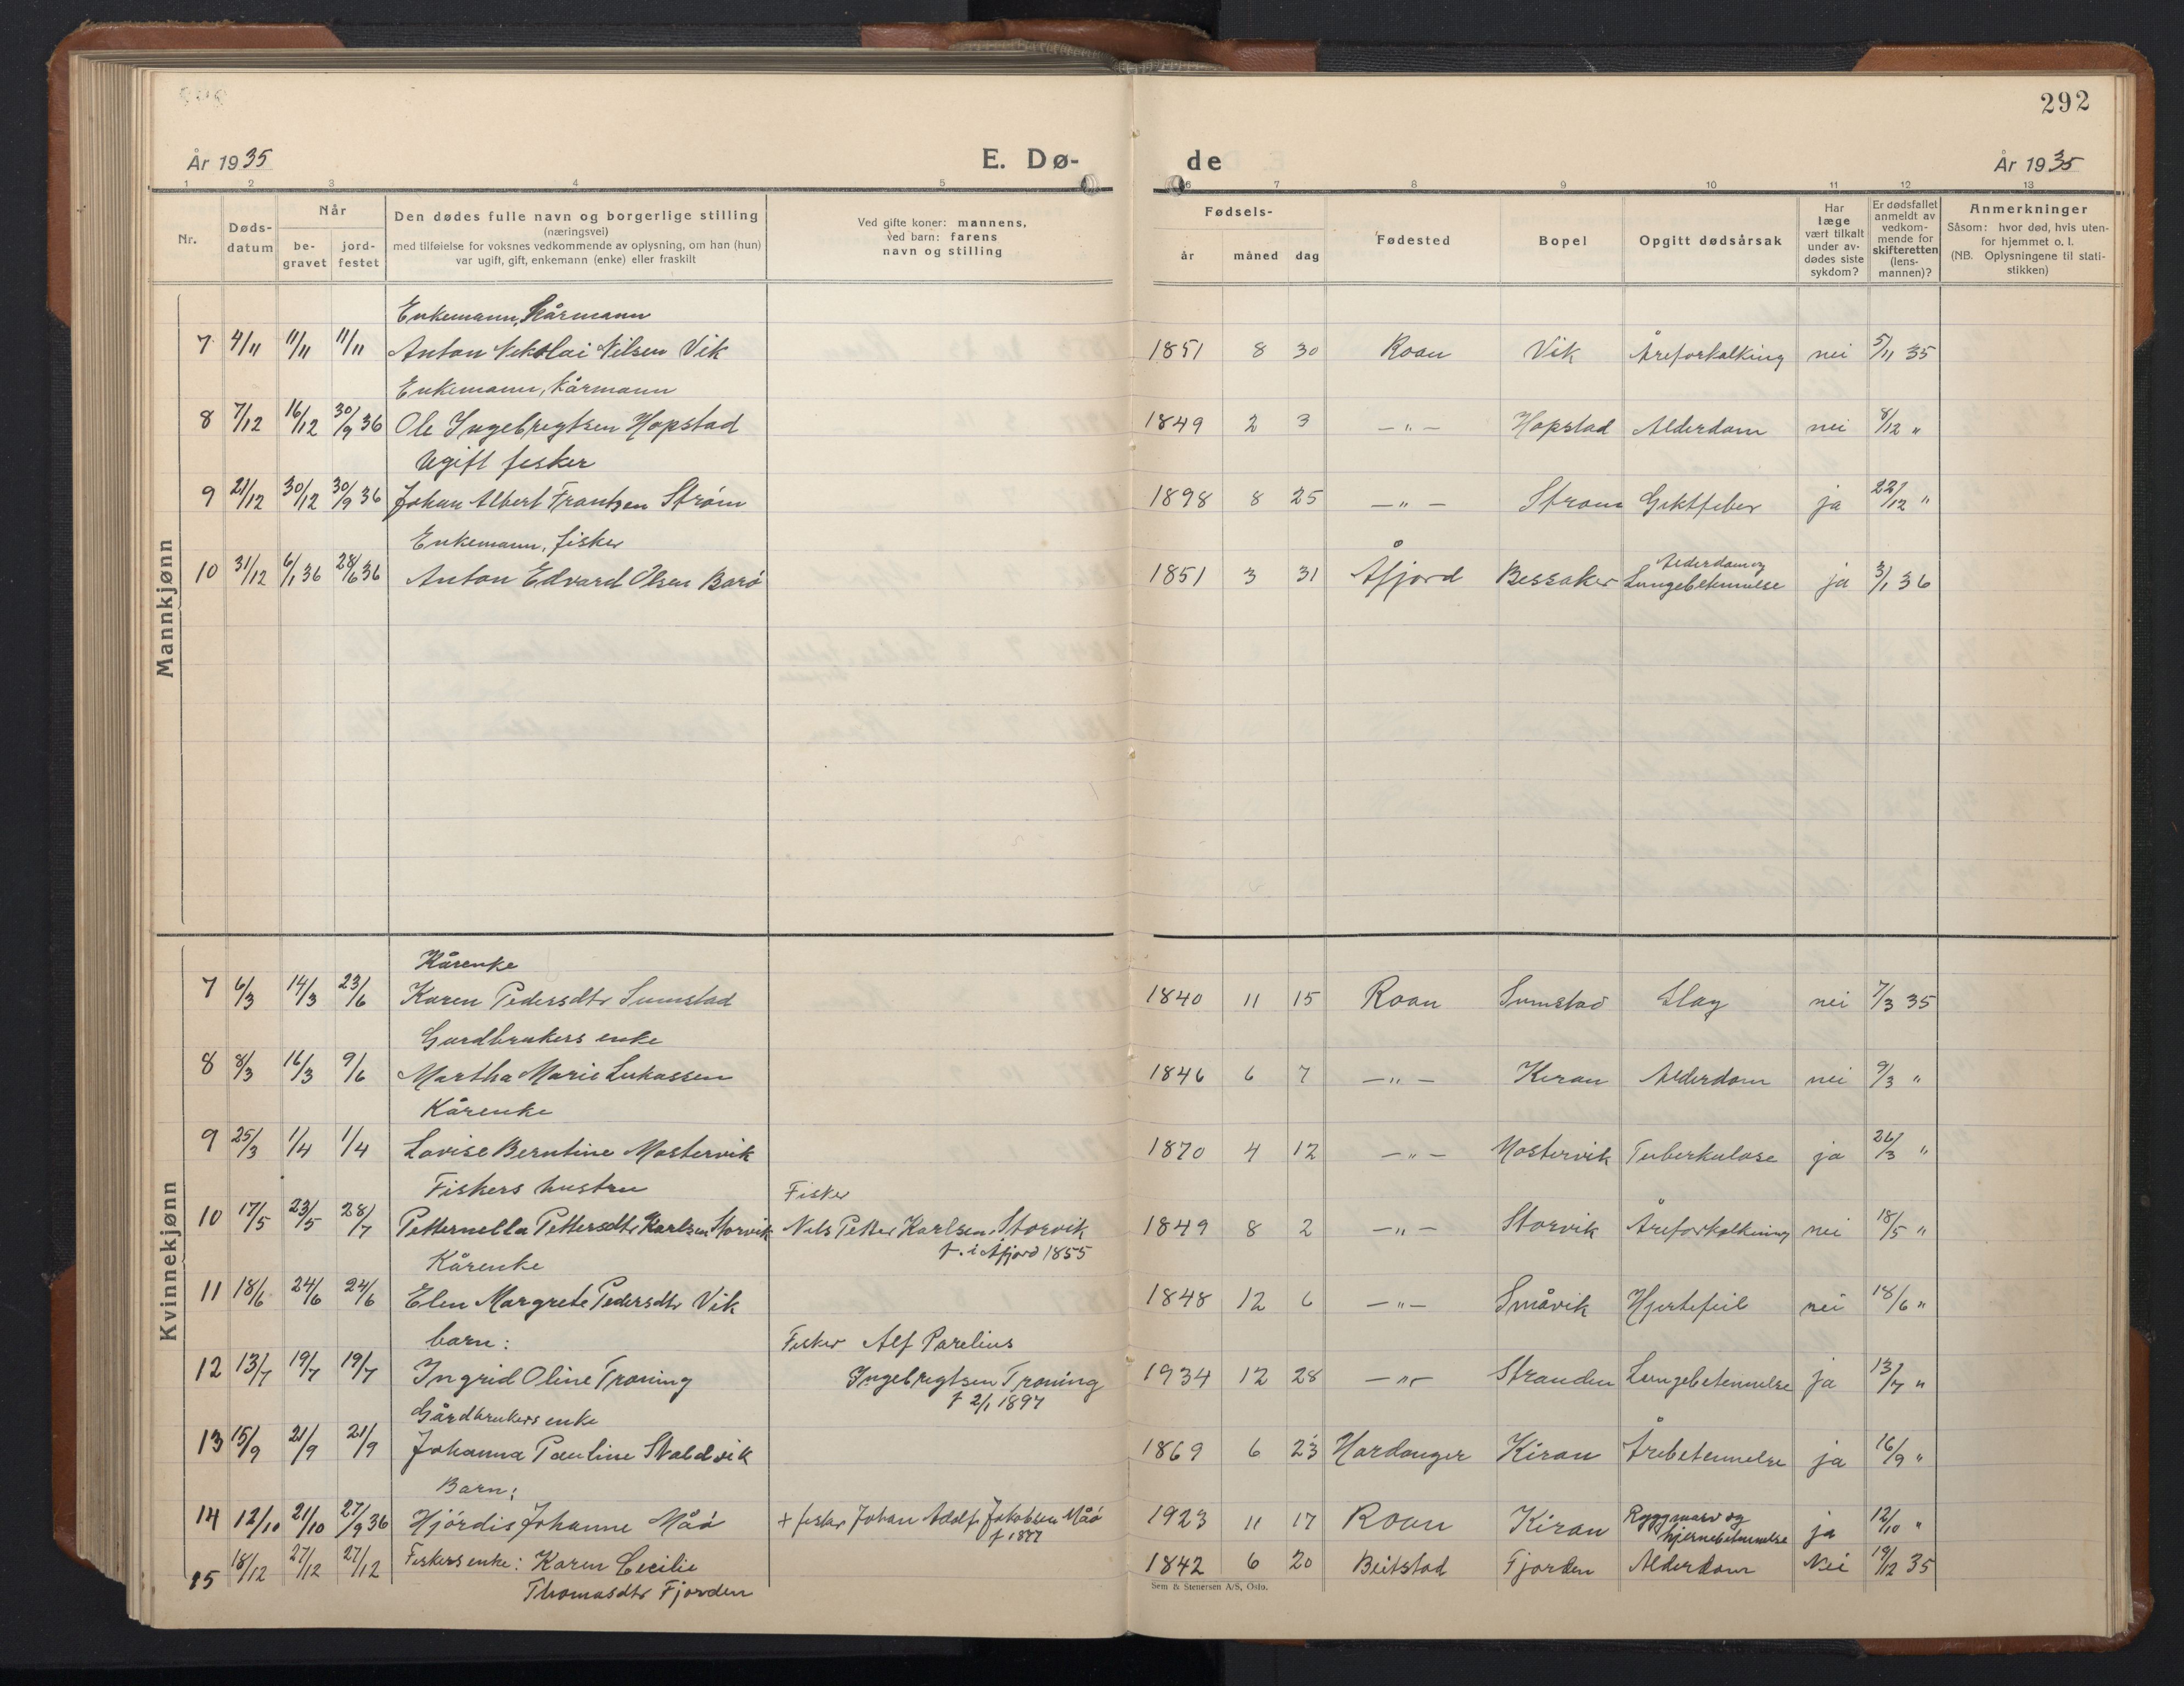 292
År 1935
E. Dø-
de
År 1935
1 2 3 4 5 6 7 8 9 10 11 12 13
Nr.
Døds-
datum
Når
be-
gravet
jord-
festet
Den dødes fulle navn og borgerlige stilling
(næringsvei)
med tilføielse for voksnes vedkommende av oplysning, om han (hun)
var ugift, gift, enkemann (enke) eller fraskilt
Ved gifte koner: mannens,
ved barn: farens
navn og stilling
Fødsels-
år måned dag
Fødested
Bopel
Opgitt dødsårsak
Har
læge
vært tilkalt
under av-
dødes siste
sykdom?
Er dødsfallet
anmeldt av
vedkom-
mende for
skifteretten
(lens-
mannen)?
Anmerkninger
Såsom: hvor død, hvis uten-
for hjemmet o. l.
(NB. Oplysningene til stati-
stikken)
Mannkjønn
Enkemann, Kårmann
7 4/11 11/11 11/11 Anton Nikolai Nilsen Vik 1851 8 30 Roan Vik Åreforkalking nei 5/11 35
Enkemann, kårmann
8 7/12 16/12 30/9 36 Ole Ingebregtsen Hopstad 1849 2 3 —„— Hopstad Alderdom nei 8/12 „
Ugift fisker
9 21/12 30/12 30/9 36 Johan Albert Frantzen Strøm 1898 8 25 —„— Strøm Giktfeber ja 22/12 „
Enkemann, fisker
Alderdom og
10 31/12 6/1 36 28/6 36 Anton Edvard Olsen Barø 1851 3 31 Åfjord Bessaker Lungebetennelse ja 3/1 36
Kvinnekjønn
Kårenke
7 6/3 14/3 23/6 Karen Pedersdtr Sumstad 1840 11 15 Roan Sumstad Slag nei 7/3 35
Gardbrukers enke
8 8/3 16/3 9/6 Martha Marie Lukassen 1846 6 7 —„— Kiran Alderdom nei 9/3 „
Kårenke
9 25/3 1/4 1/4 Lovise Berntine Mostervik 1870 4 12 —„— Mostervik Tuberkulose ja 26/3 „
Fiskers hustru Fisker
10 17/5 23/5 28/7 Petternella Pettersdtr Karlsen Storvik Nils Petter Karlsen Storvik 1849 8 2 —„— Storvik Åreforkalkning nei 18/5 „
f. i Åfjord 1855
Kårenke
11 18/6 24/6 24/6 Elen Margrete Pedersdtr Vik 1848 12 6 —„— Småvik Hjertefeil nei 18/6 „
barn: Fisker Alf Parelius
12 13/7 19/7 19/7 Ingrid Oline Troning Ingebregtsen Troning 1934 12 28 —„— Stranden Lungebetennelse ja 13/7 „
f 2/1 1897
Gårdbrukers enke
13 15/9 21/9 21/9 Johanna Pauline Skaldvik 1869 6 23 Hardanger Kiran Årebetennelse ja 16/9 „
Barn:
14 12/10 21/10 27/9 36 Hjørdis Johanne Måø + fisker Johan Adolf Jakobsen Måø 1923 11 17 Roan Kiran Ryggmarv og
hjernebetennelse ja 12/10 „
f 1877
15 18/12 27/12 27/12 Fiskers enke: Karen Cecilie 1842 6 20 Beitstad Fjorden Alderdom Nei 19/12 35
Thomasdtr Fjorden
Sem & Stenersen A/S, Oslo.